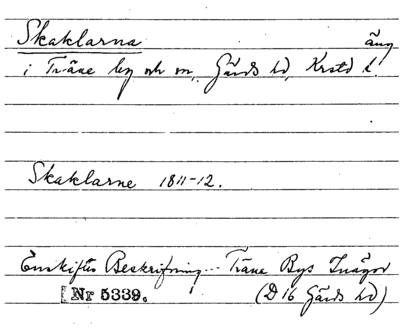 Skaklarna äng
i Träne by och sn, Gärds hd, Krstd l.
Skaklarne 1811-12.
Enskiftes Beskrifning... Träne Bys Inägor
Nr 5339. (D 16 Gärds hd)